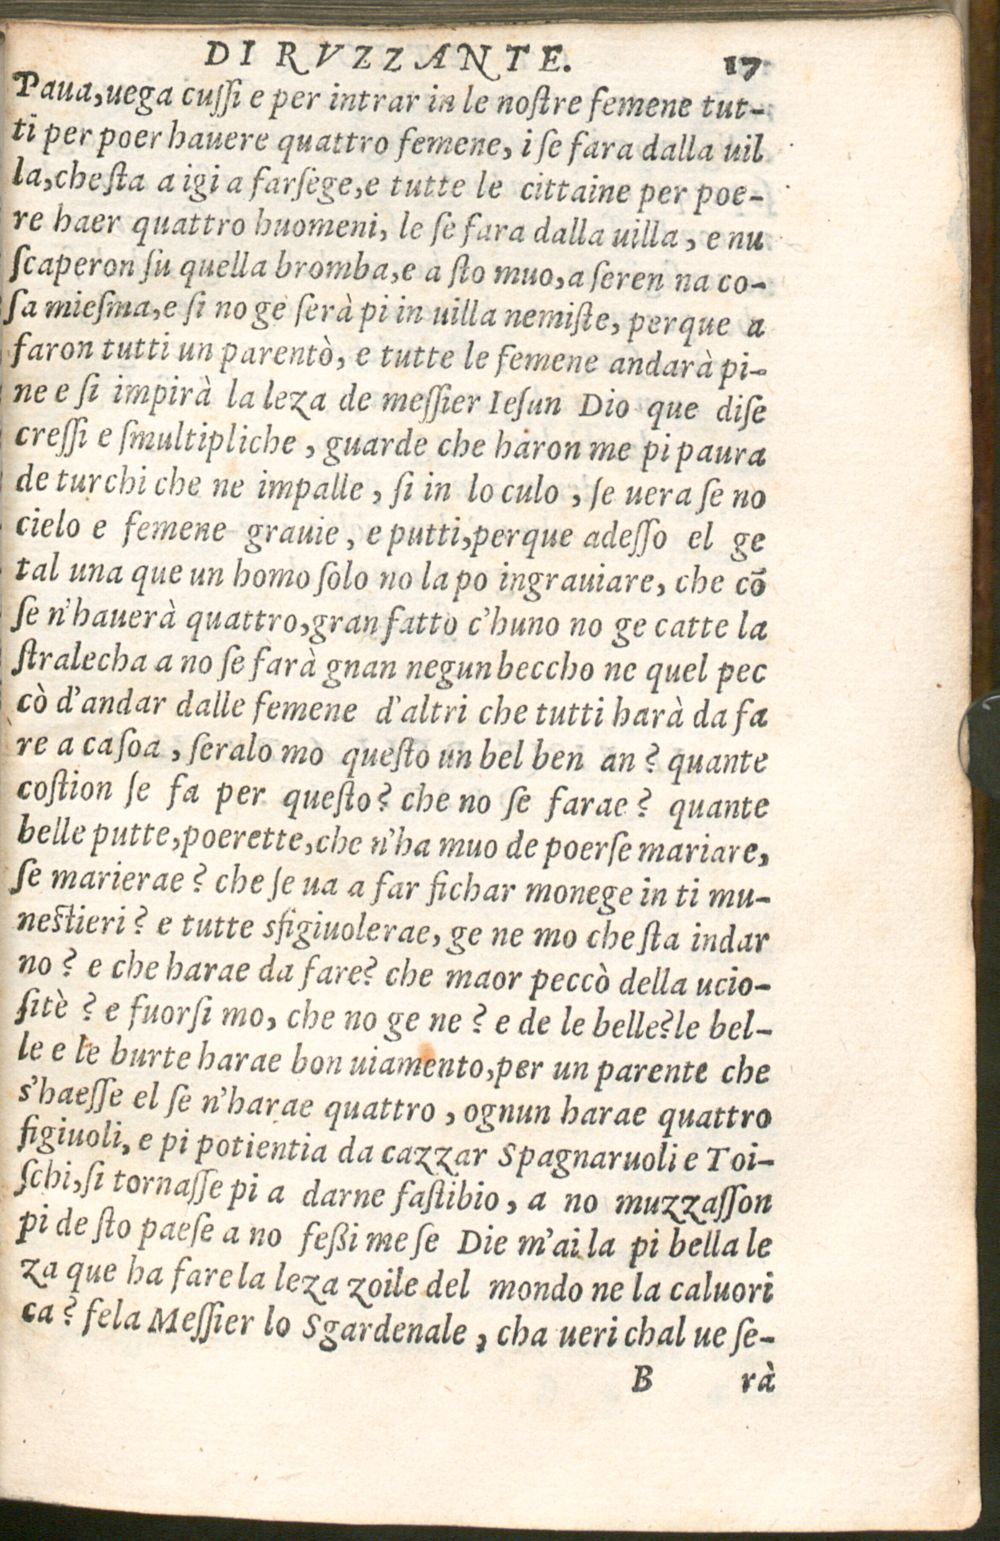 DI RVZZANTE. 17
Paua,uega cuſſi e per intrar in le noſtre femene tut-
ti per poer hauere quattro femene, i ſe fara dalla uil
la,cheſta a igi a farſege,e tutte le cittaine per poe-
re haer quattro huomeni, le ſe fara dalla uilla, e nu
ſcaperon ſu quella bromba,e a ſto muo,a ſeren na co-
ſa mieſma,e ſi no ge ſerà pi in uilla nemiſte, perque a
faron tutti un parentò, e tutte le femene andarà pi-
ne e ſi impirà la leza de meſſier Ieſun Dio que diſe
creſſi e ſmultipliche, guarde che haron me pi paura
de turchi che ne impalle, ſi in lo culo, ſe uera ſe no
cielo e femene grauie, e putti,perque adeſſo el ge
tal una que un homo ſolo no la po ingrauiare, che cō
ſe n'hauerà quattro,gran fatto c'huno no ge catte la
ſtralecha a no ſe farà gnan negun beccho ne quel pec
cò d'andar dalle femene d'altri che tutti harà da fa
re a caſoa, ſeralo mo queſto un bel ben an? quante
coſtion ſe fa per queſto? che no ſe farae? quante
belle putte,poerette,che n'ha muo de poerſe mariare,
ſe marierae? che ſe ua a far fichar monege in ti mu-
neſtieri? e tutte sfigiuolerae, ge ne mo cheſta indar
no? e che harae da fare? che maor peccò della ucio-
ſitè? e fuorſi mo, che no ge ne? e de le belle?le bel-
le e le burte harae bon uiamento,per un parente che
s'haeſſe el ſe n'harae quattro, ognun harae quattro
figiuoli, e pi potientia da cazzar Spagnaruoli e Toi-
ſchi,ſi tornaſſe pi a darne faſtibio, a no muzzaſſon
pi de ſto paeſe a no feßi me ſe Die m'ai la pi bella le
za que ha fare la leza zoile del mondo ne la caluori
ca? fela Meſſier lo Sgardenale, cha ueri chal ue ſe-
B rà